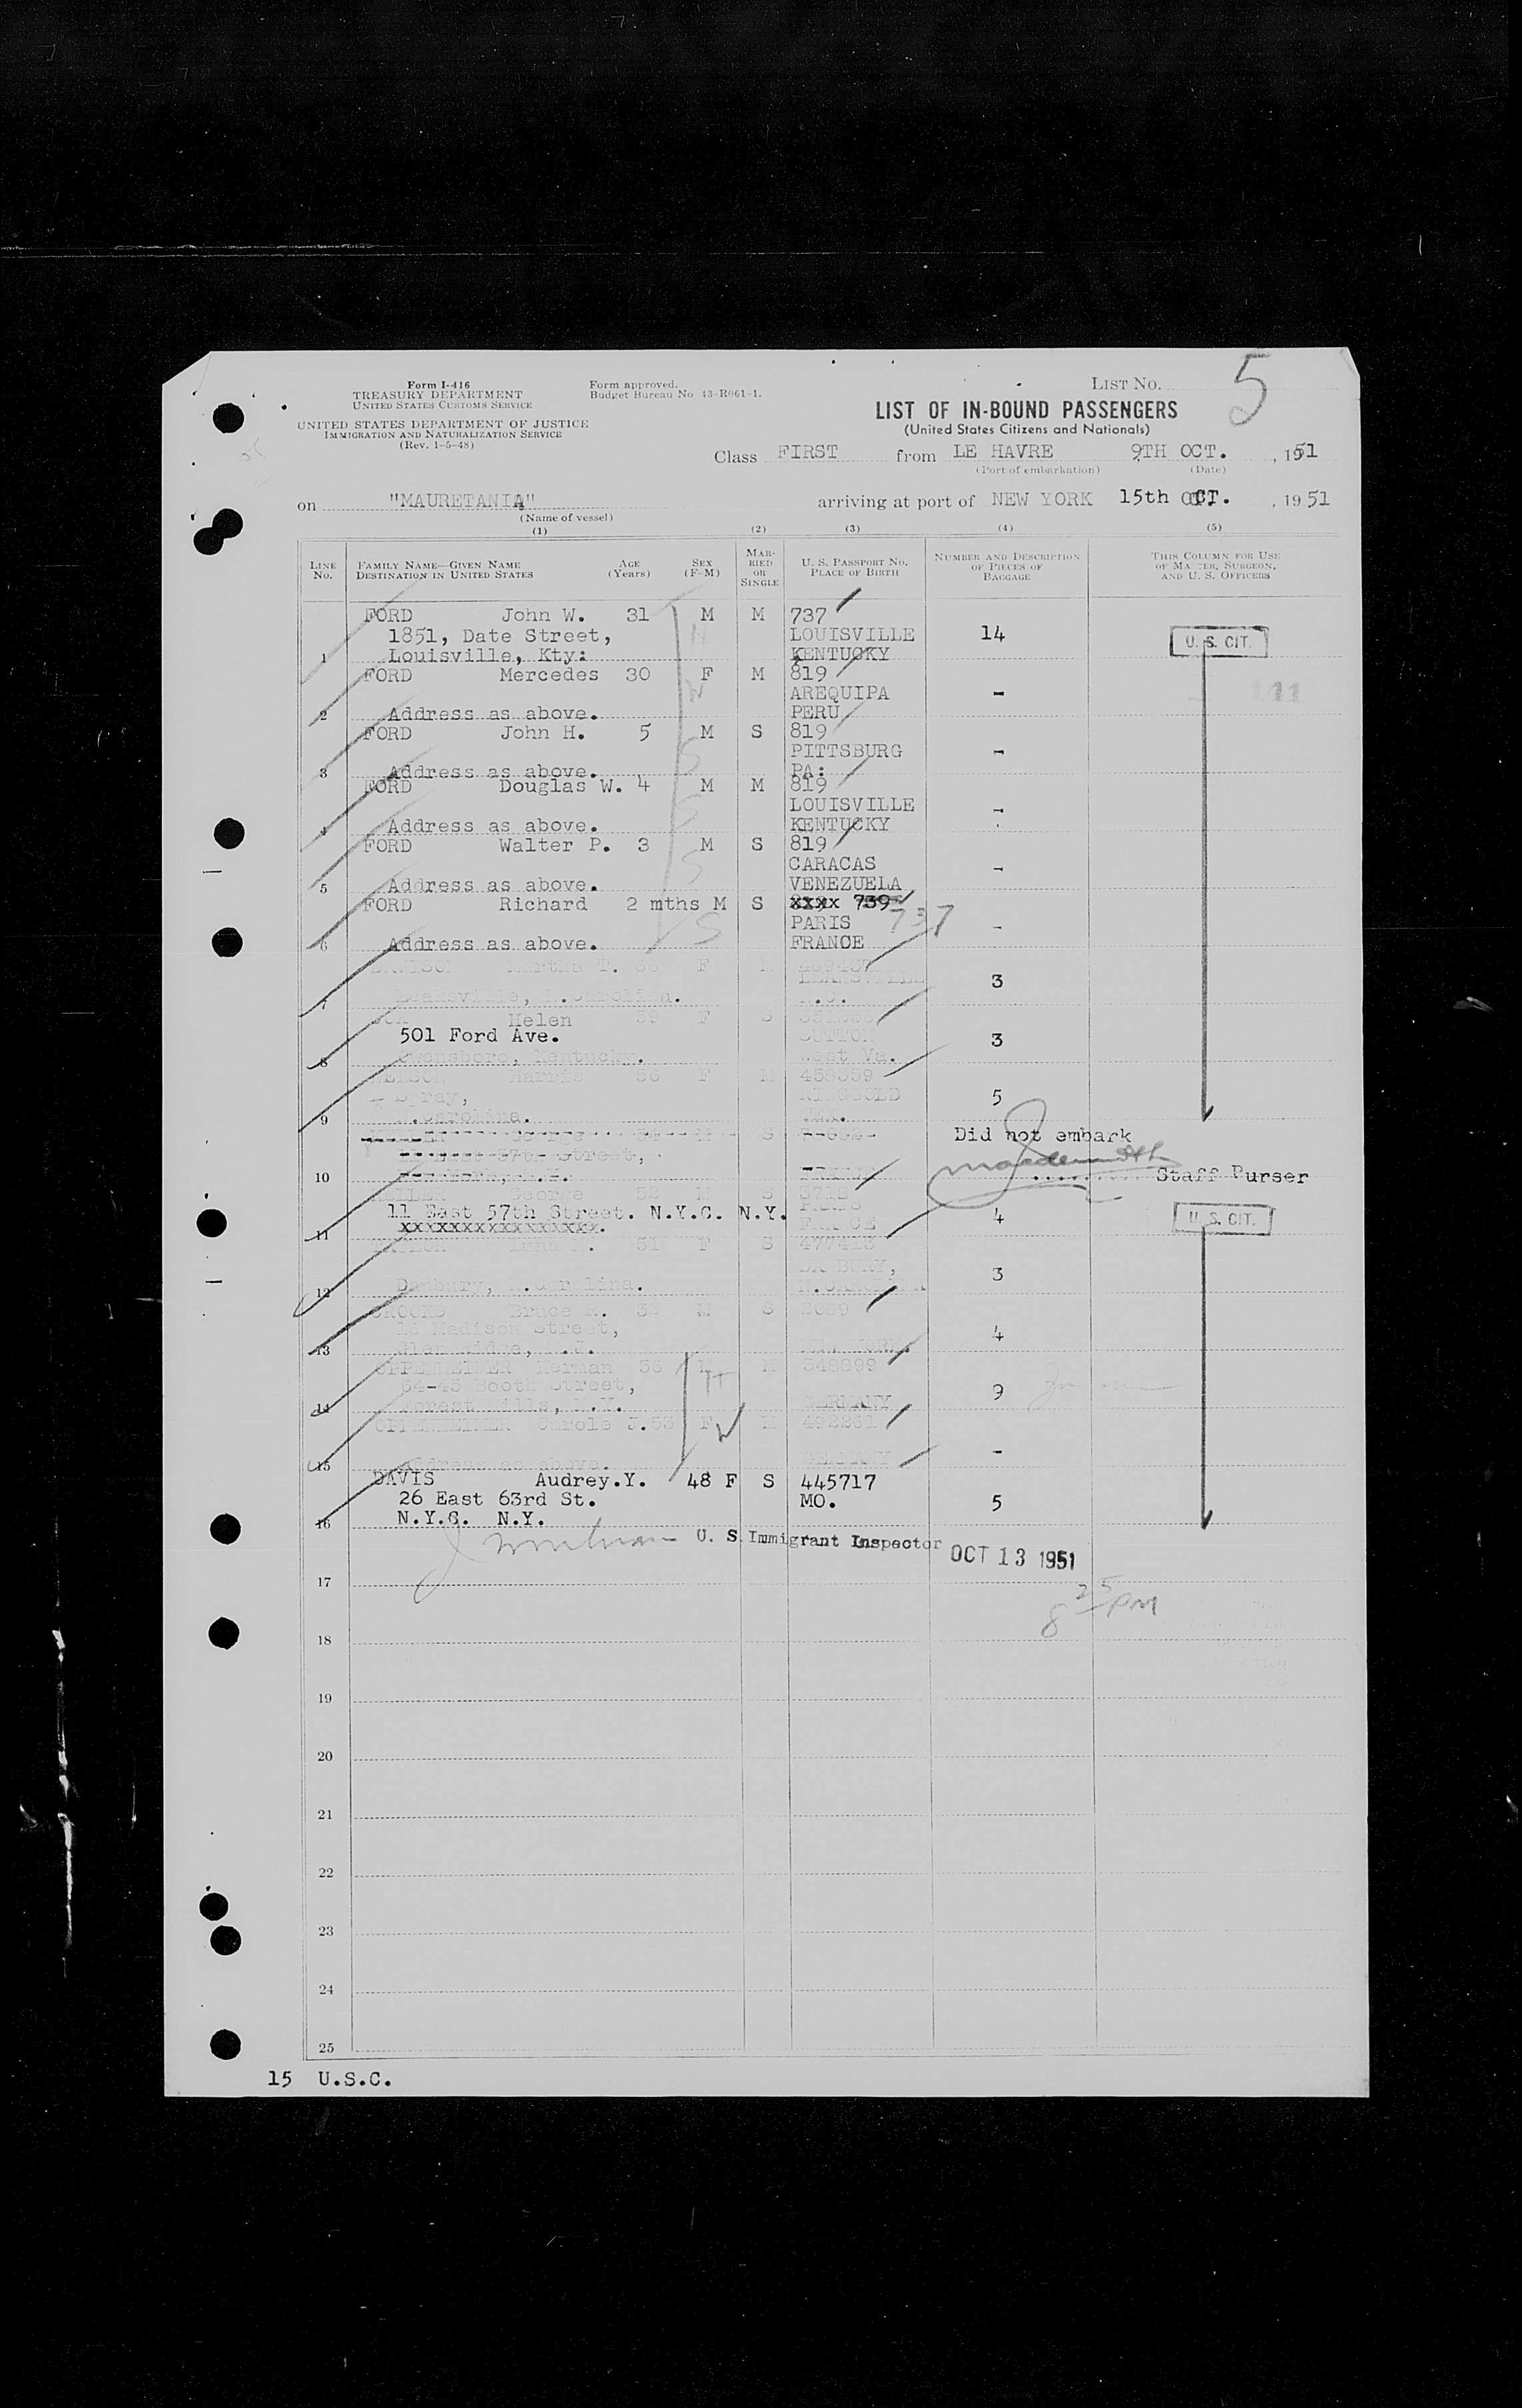 Form I-416
TREASURY DEPARTMENT
UNITED STATES CUSTOMS SERVICE
UNITED STATES DEPARTMENT OF JUSTICE
IMMIGRATION AND NATURALIZATION SERVICE
(Rev. 1-5-48)
Form approved.
Budget Bureau No. 43-R061-1.
LIST NO. 5
LIST OF IN-BOUND PASSENGERS
(United States Citizens and Nationals)
Class FIRST from LE HAVRE 9TH OCT. , 1951
(Port of embarkation) (Date)
on "MAURETANIA" arriving at port of NEW YORK 15th OCT. , 1951
(Name of vessel)
(1) (2) (3) (4) (5)
LINE NO. FAMILY NAME—GIVEN NAME DESTINATION IN UNITED STATES AGE (Years) SEX (F-M) MARRIED OR SINGLE U. S. PASSPORT NO. PLACE OF BIRTH NUMBER AND DESCRIPTION OF PIECES OF BAGGAGE THIS COLUMN FOR USE OF MASTER, SURGEON, AND U. S. OFFICERS
FORD John W. 31 M M 737
1851, Date Street, LOUISVILLE 14 U. S. CIT.
1 Louisville, Kty: KENTUCKY
FORD Mercedes 30 F M 819
W AREQUIPA -
2 Address as above. PERU
FORD John H. 5 M S 819
S PITTSBURG -
3 Address as above. PA:
FORD Douglas W. 4 M M 819
S LOUISVILLE -
4 Address as above. KENTUCKY
FORD Walter P. 3 M S 819
S CARACAS -
5 Address as above. VENEZUELA
FORD Richard 2 mths M S xxxx 739
S PARIS 737 -
6 Address as above. FRANCE
Martha T. F
3
7 Leaksville, N.Carolina. N.C.
Helen 39 F S
501 Ford Ave. SUTTON 3
8 Owensboro, Kentucky. West Va.
Harris 36 F M 458359
Spray, RINGGOLD 5
9 N.Carolina. TEX.
George S
East 57th Street, Did not embark
10 Staff Purser
George 52 M S
11 East 57th Street. N.Y.C. N.Y. PARIS 4 U. S. CIT.
11 xxxxxxxxxxxxxxxxx. FRANCE
51 F S 477413
DANBURY, 3
12 Danbury, N.Carolina. N.CAROLINA
BROOKS Bruce R. M S 2089
Madison Street, 4
13 Glen Ridge, N.J. NEW YORK.
OPPENHEIMER Herman 56 M M 348899
64-45 Booth Street, H 9
14 Forest Hills, N.Y. GERMANY
OPPENHEIMER Carole J. 53 F W M 492281
-
15 Address as above. GERMANY
DAVIS Audrey.Y. 48 F S 445717
26 East 63rd St. MO. 5
16 N.Y.C. N.Y.
U. S. Immigrant Inspector OCT 13 1951
17
8 25 PM
18
19
20
21
22
23
24
25
15 U.S.C.